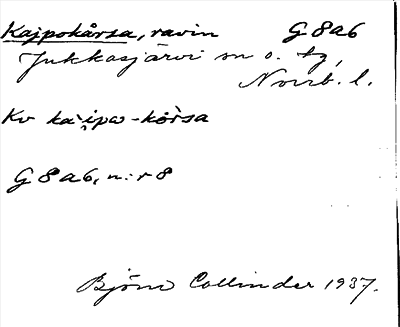 Kajpokårsa, ravin G 8 a 6
Jukkasjärvi sn o. tg,
Norrb. l.
Kv
G 8 a 6, n:r 8
Björn Collinder 1937.